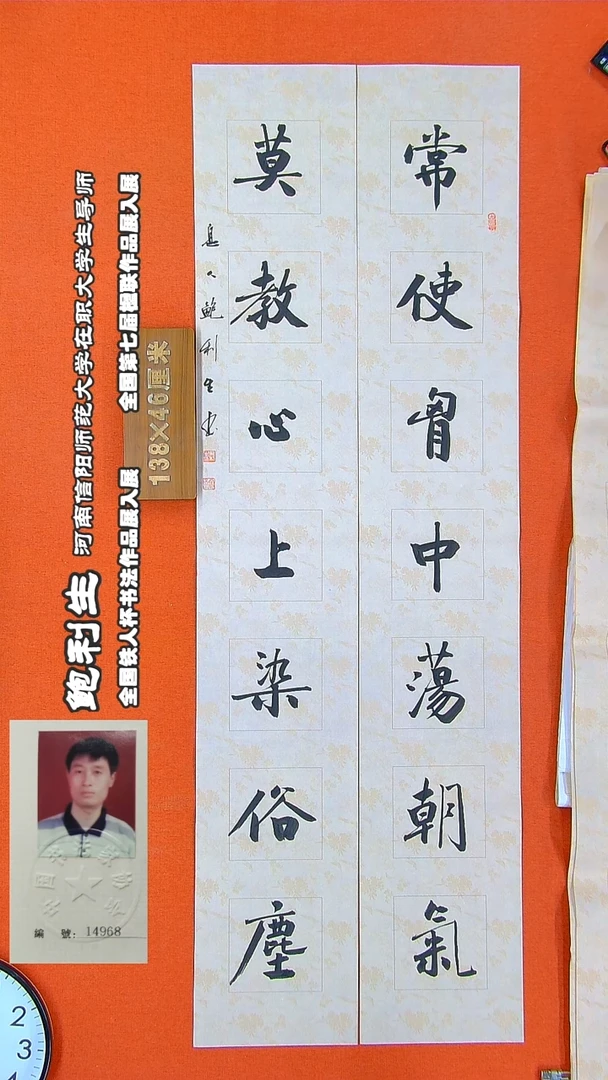 常使胷中蕩朝氣
莫教心上染俗塵
息人鮑利生書
鲍利生 河南信阳师范大学在职大学生导师
全国铁人杯书法作品展入展 全国第七届楹联作品展入展
138×46厘米
編 號: 14968
2
3
4